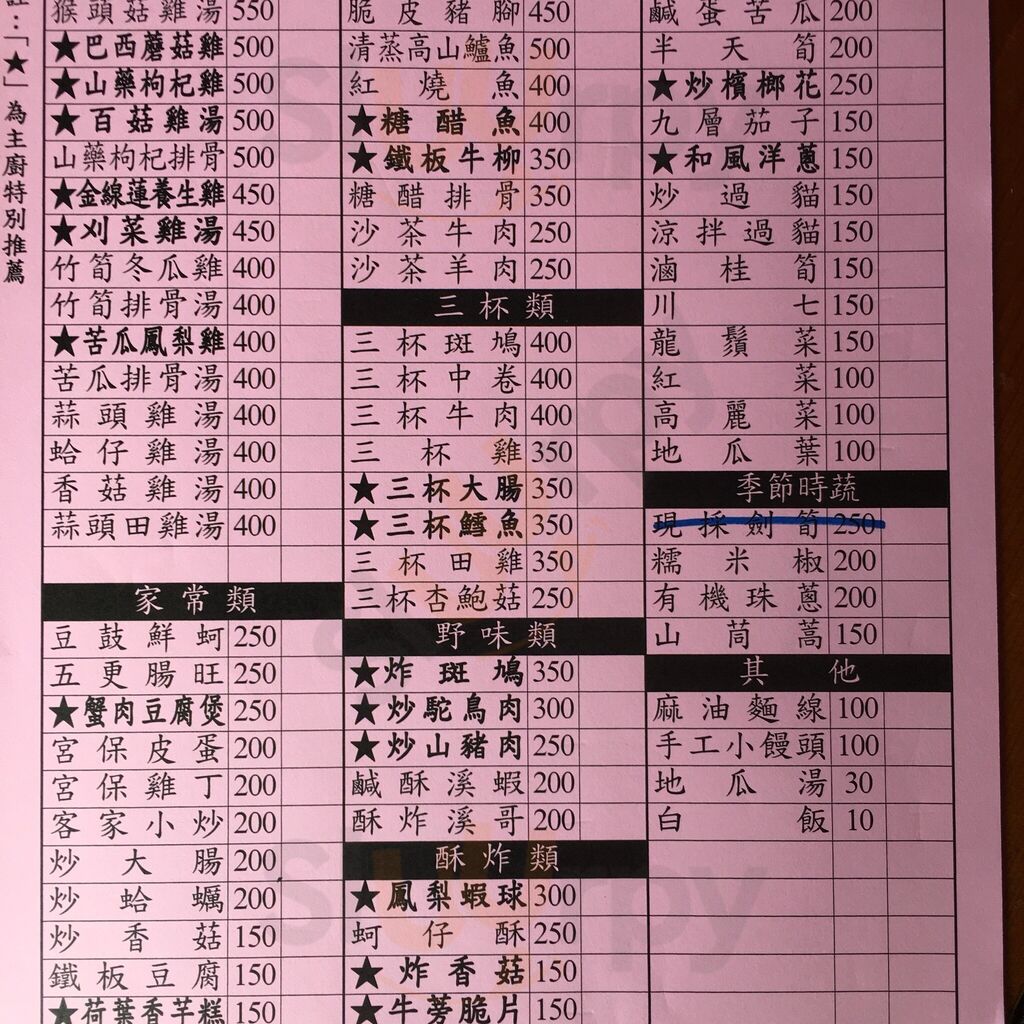 註:「★」為主廚特別推薦
猴頭菇雞湯 550
★巴西蘑菇雞 500
★山藥枸杞雞 500
★百菇雞湯 500
山藥枸杞排骨 500
★金線蓮養生雞 450
★刈菜雞湯 450
竹筍冬瓜雞 400
竹筍排骨湯 400
★苦瓜鳳梨雞 400
苦瓜排骨湯 400
蒜頭雞湯 400
蛤仔雞湯 400
香菇雞湯 400
蒜頭田雞湯 400
家常類
豆鼓鮮蚵 250
五更腸旺 250
★蟹肉豆腐煲 250
宮保皮蛋 200
宮保雞丁 200
客家小炒 200
炒大腸 200
炒蛤蠣 200
炒香菇 150
鐵板豆腐 150
★荷葉香芋糕 150
脆皮豬腳 450
清蒸高山鱸魚 500
紅燒魚 400
★糖醋魚 400
★鐵板牛柳 350
糖醋排骨 350
沙茶牛肉 250
沙茶羊肉 250
三杯類
三杯斑鳩 400
三杯中卷 400
三杯牛肉 400
三杯雞 350
★三杯大腸 350
★三杯鱈魚 350
三杯田雞 350
三杯杏鮑菇 250
野味類
★炸斑鳩 350
★炒駝鳥肉 300
★炒山豬肉 250
鹹酥溪蝦 200
酥炸溪哥 200
酥炸類
★鳳梨蝦球 300
蚵仔酥 250
★炸香菇 150
★牛蒡脆片 150
鹹蛋苦瓜 200
半天筍 200
★炒檳榔花 250
九層茄子 150
★和風洋蔥 150
炒過貓 150
涼拌過貓 150
滷桂筍 150
川七 150
龍鬚菜 150
紅菜 100
高麗菜 100
地瓜葉 100
季節時蔬
現採劍筍 250
糯米椒 200
有機珠蔥 200
山茼蒿 150
其他
麻油麵線 100
手工小饅頭 100
地瓜湯 30
白飯 10